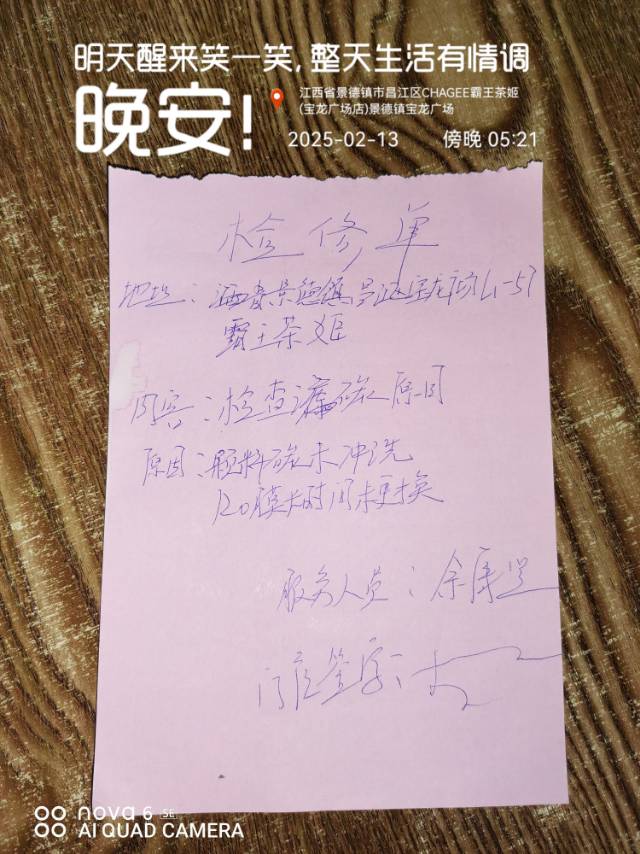 明天醒来笑一笑,整天生活有情调
晚安!
江西省景德镇市昌江区CHAGEE霸王茶姬
(宝龙广场店)景德镇宝龙广场
2025-02-13 傍晚 05:21
检修单
地址：江西省景德镇昌江区宝龙广场L1-57
霸王茶姬
内容：检查漏碳原因
原因：颗料碳未冲洗
RO膜长时间未更换
服务人员：余
门店签字：
nova 6 SE
AI QUAD CAMERA